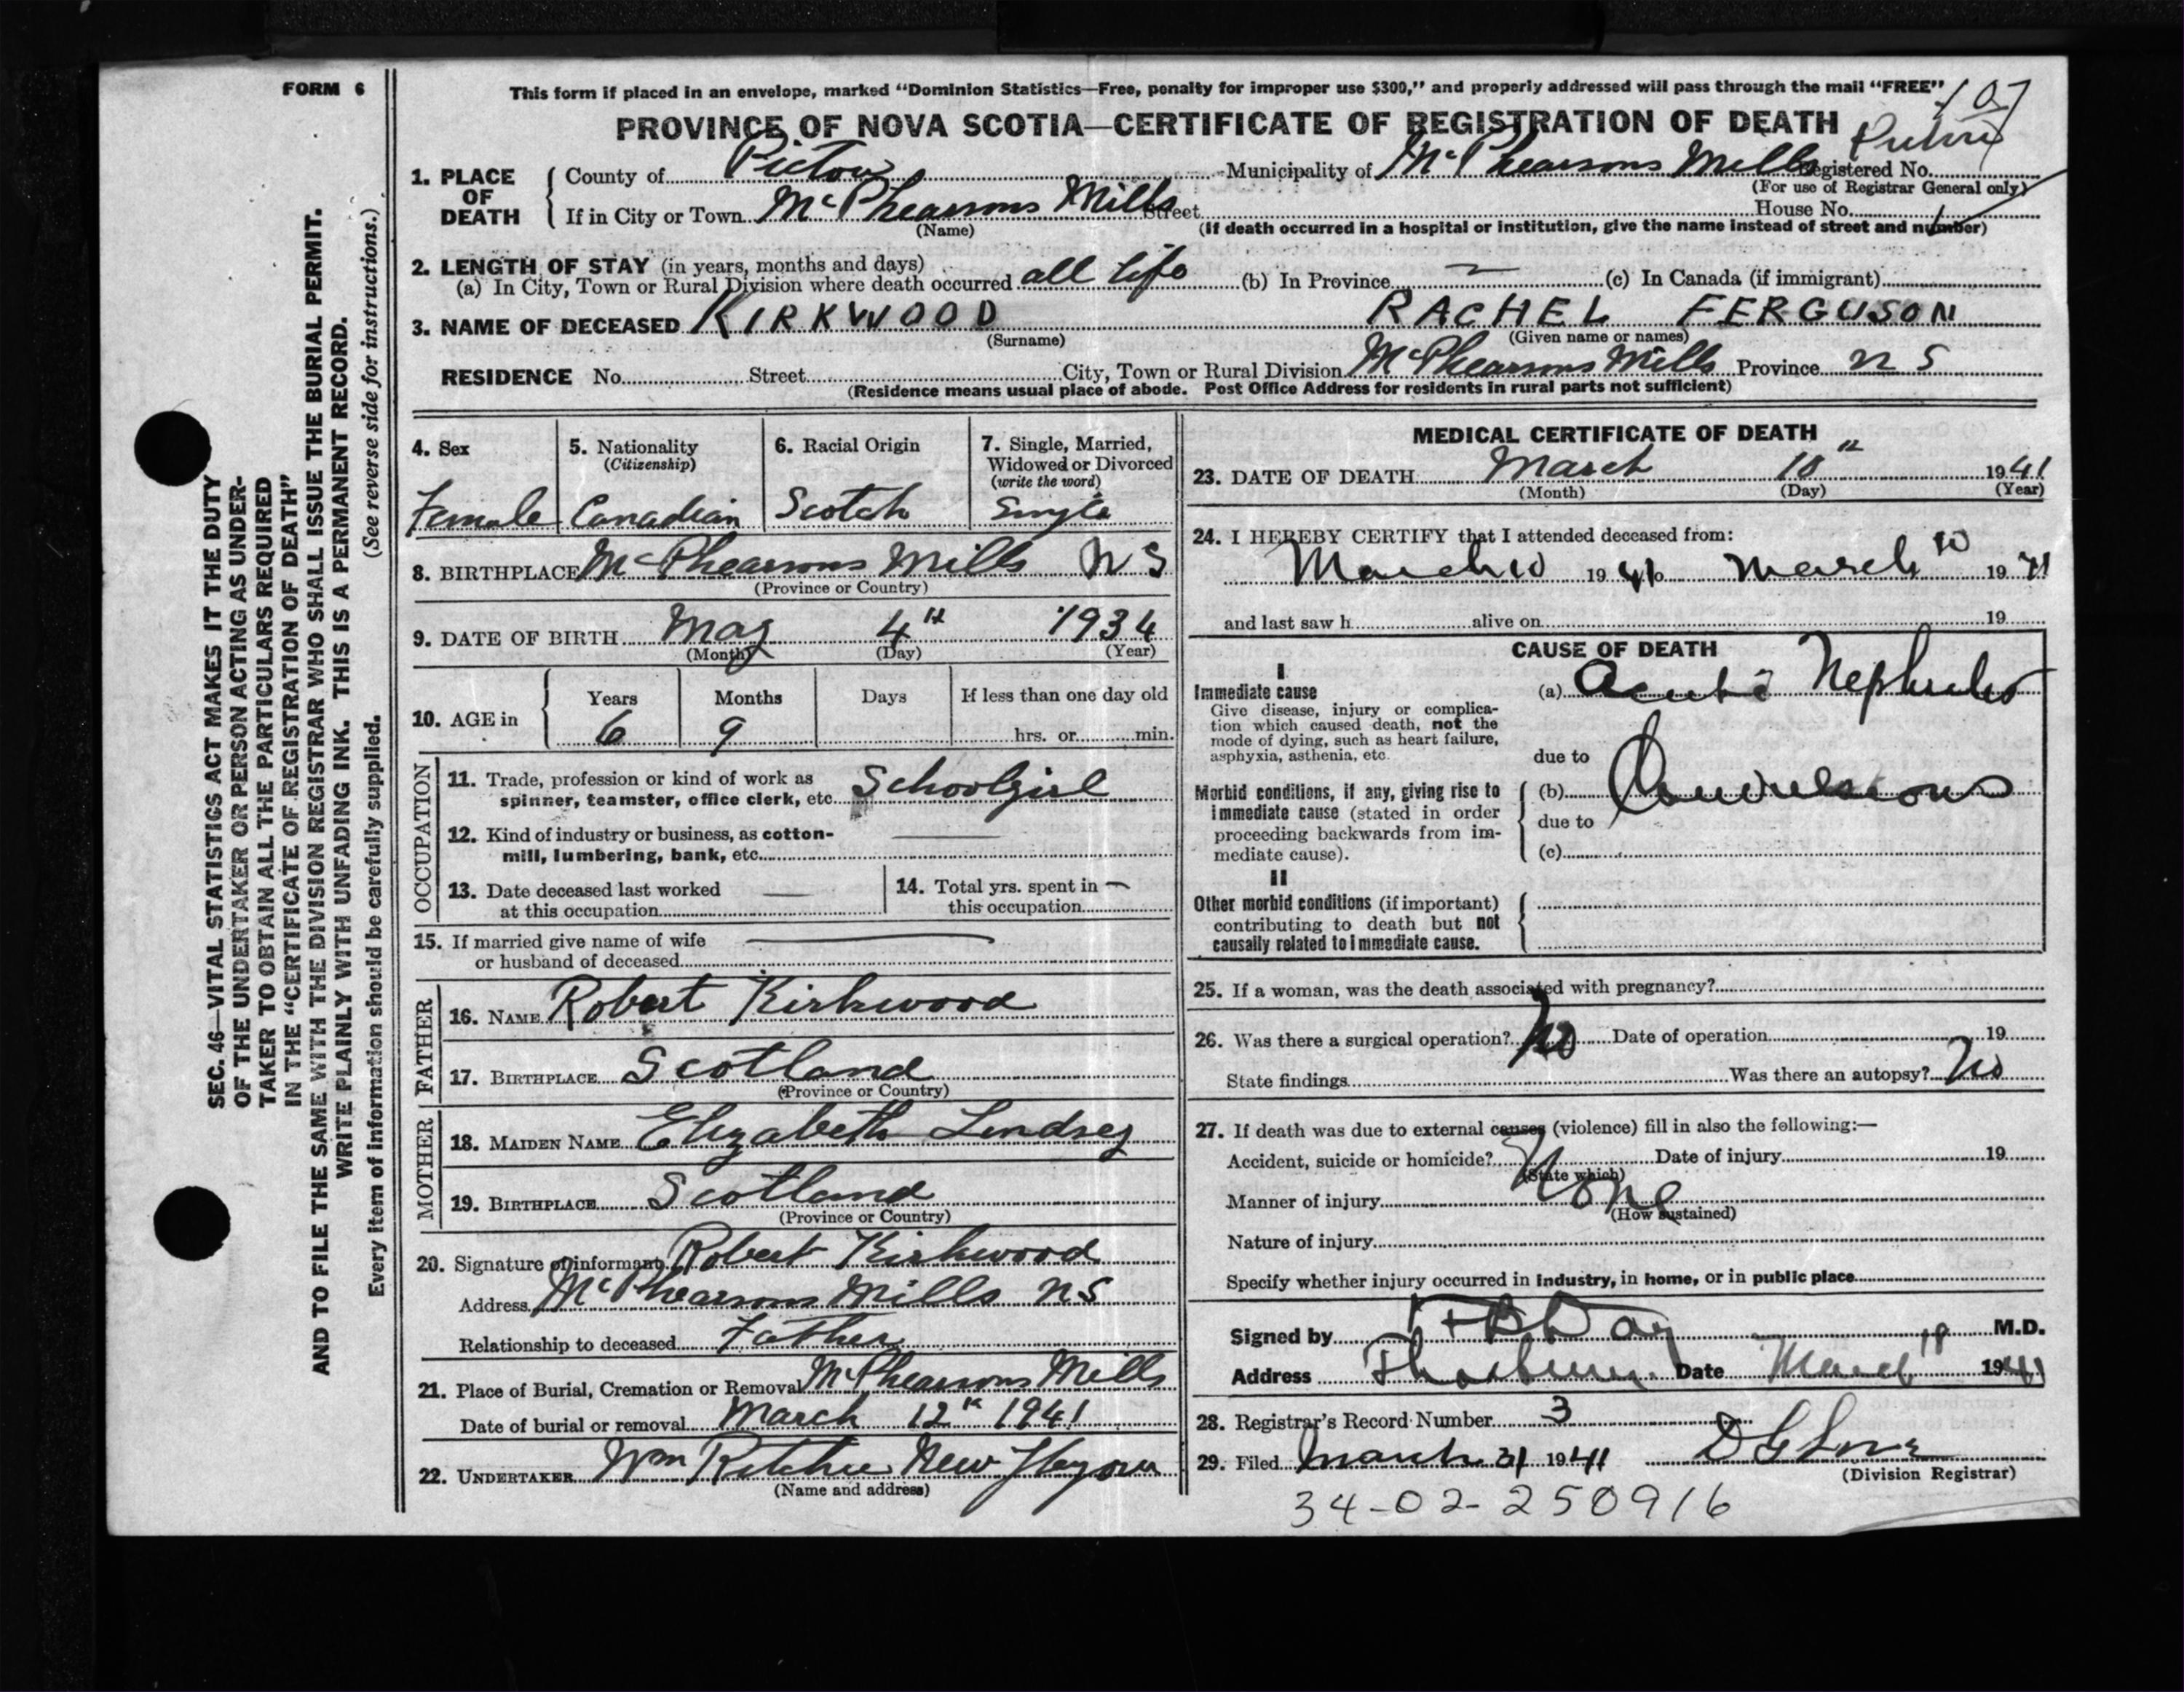 FORM 6
This form if placed in an envelope, marked "Dominion Statistics—Free, penalty for improper use $300," and properly addressed will pass through the mail "FREE"
107
PROVINCE OF NOVA SCOTIA—CERTIFICATE OF REGISTRATION OF DEATH
1. PLACE OF DEATH
County of Pictou Municipality of McPhearsons Mills Registered No.
(For use of Registrar General only)
If in City or Town McPhearsons Mills Street House No.
(Name) (If death occurred in a hospital or institution, give the name instead of street and number)
2. LENGTH OF STAY (in years, months and days)
(a) In City, Town or Rural Division where death occurred all life (b) In Province — (c) In Canada (if immigrant)
3. NAME OF DECEASED KIRKWOOD RACHEL FERGUSON
(Surname) (Given name or names)
RESIDENCE No. Street City, Town or Rural Division McPhearsons Mills Province NS
(Residence means usual place of abode. Post Office Address for residents in rural parts not sufficient)
4. Sex
Female
5. Nationality
(Citizenship)
Canadian
6. Racial Origin
Scotch
7. Single, Married,
Widowed or Divorced
(write the word)
Single
8. BIRTHPLACE McPhearsons Mills NS
(Province or Country)
9. DATE OF BIRTH May 4th 1934
(Month) (Day) (Year)
10. AGE in
Years Months Days If less than one day old
6 9 hrs. or min.
OCCUPATION
11. Trade, profession or kind of work as
spinner, teamster, office clerk, etc. Schoolgirl
12. Kind of industry or business, as cotton-
mill, lumbering, bank, etc. —
13. Date deceased last worked
at this occupation —
14. Total yrs. spent in
this occupation —
15. If married give name of wife
or husband of deceased —
FATHER
16. NAME Robert Kirkwood
17. BIRTHPLACE Scotland
(Province or Country)
MOTHER
18. MAIDEN NAME Elizabeth Lindsey
19. BIRTHPLACE Scotland
(Province or Country)
20. Signature of informant Robert Kirkwood
Address McPhearsons Mills NS
Relationship to deceased Father
21. Place of Burial, Cremation or Removal McPhearsons Mills
Date of burial or removal March 12th 1941
22. UNDERTAKER Wm Ritchie New
(Name and address)
MEDICAL CERTIFICATE OF DEATH
23. DATE OF DEATH March 10th 1941
(Month) (Day) (Year)
24. I HEREBY CERTIFY that I attended deceased from:
March 10 1941 to March 10 1941
and last saw h alive on 19
CAUSE OF DEATH
I
Immediate cause
Give disease, injury or complica-
tion which caused death, not the
mode of dying, such as heart failure,
asphyxia, asthenia, etc.
(a) Acute Nephritis
due to
Morbid conditions, if any, giving rise to
immediate cause (stated in order
proceeding backwards from im-
mediate cause).
(b) Convulsions
due to
(c)
II
Other morbid conditions (if important)
contributing to death but not
causally related to immediate cause.
25. If a woman, was the death associated with pregnancy?
26. Was there a surgical operation? No Date of operation 19
State findings Was there an autopsy? No
27. If death was due to external causes (violence) fill in also the following:—
Accident, suicide or homicide? Date of injury 19
(State which)
None
Manner of injury
(How sustained)
Nature of injury
Specify whether injury occurred in industry, in home, or in public place
Signed by Day M.D.
Address Thorburn. Date March 18 1941
28. Registrar's Record Number 3
29. Filed March 31 1941
(Division Registrar)
34-02-250916
SEC. 46—VITAL STATISTICS ACT MAKES IT THE DUTY
OF THE UNDERTAKER OR PERSON ACTING AS UNDER-
TAKER TO OBTAIN ALL THE PARTICULARS REQUIRED
IN THE "CERTIFICATE OF REGISTRATION OF DEATH"
AND TO FILE THE SAME WITH THE DIVISION REGISTRAR WHO SHALL ISSUE THE BURIAL PERMIT.
WRITE PLAINLY WITH UNFADING INK. THIS IS A PERMANENT RECORD.
Every item of information should be carefully supplied. (See reverse side for instructions.)